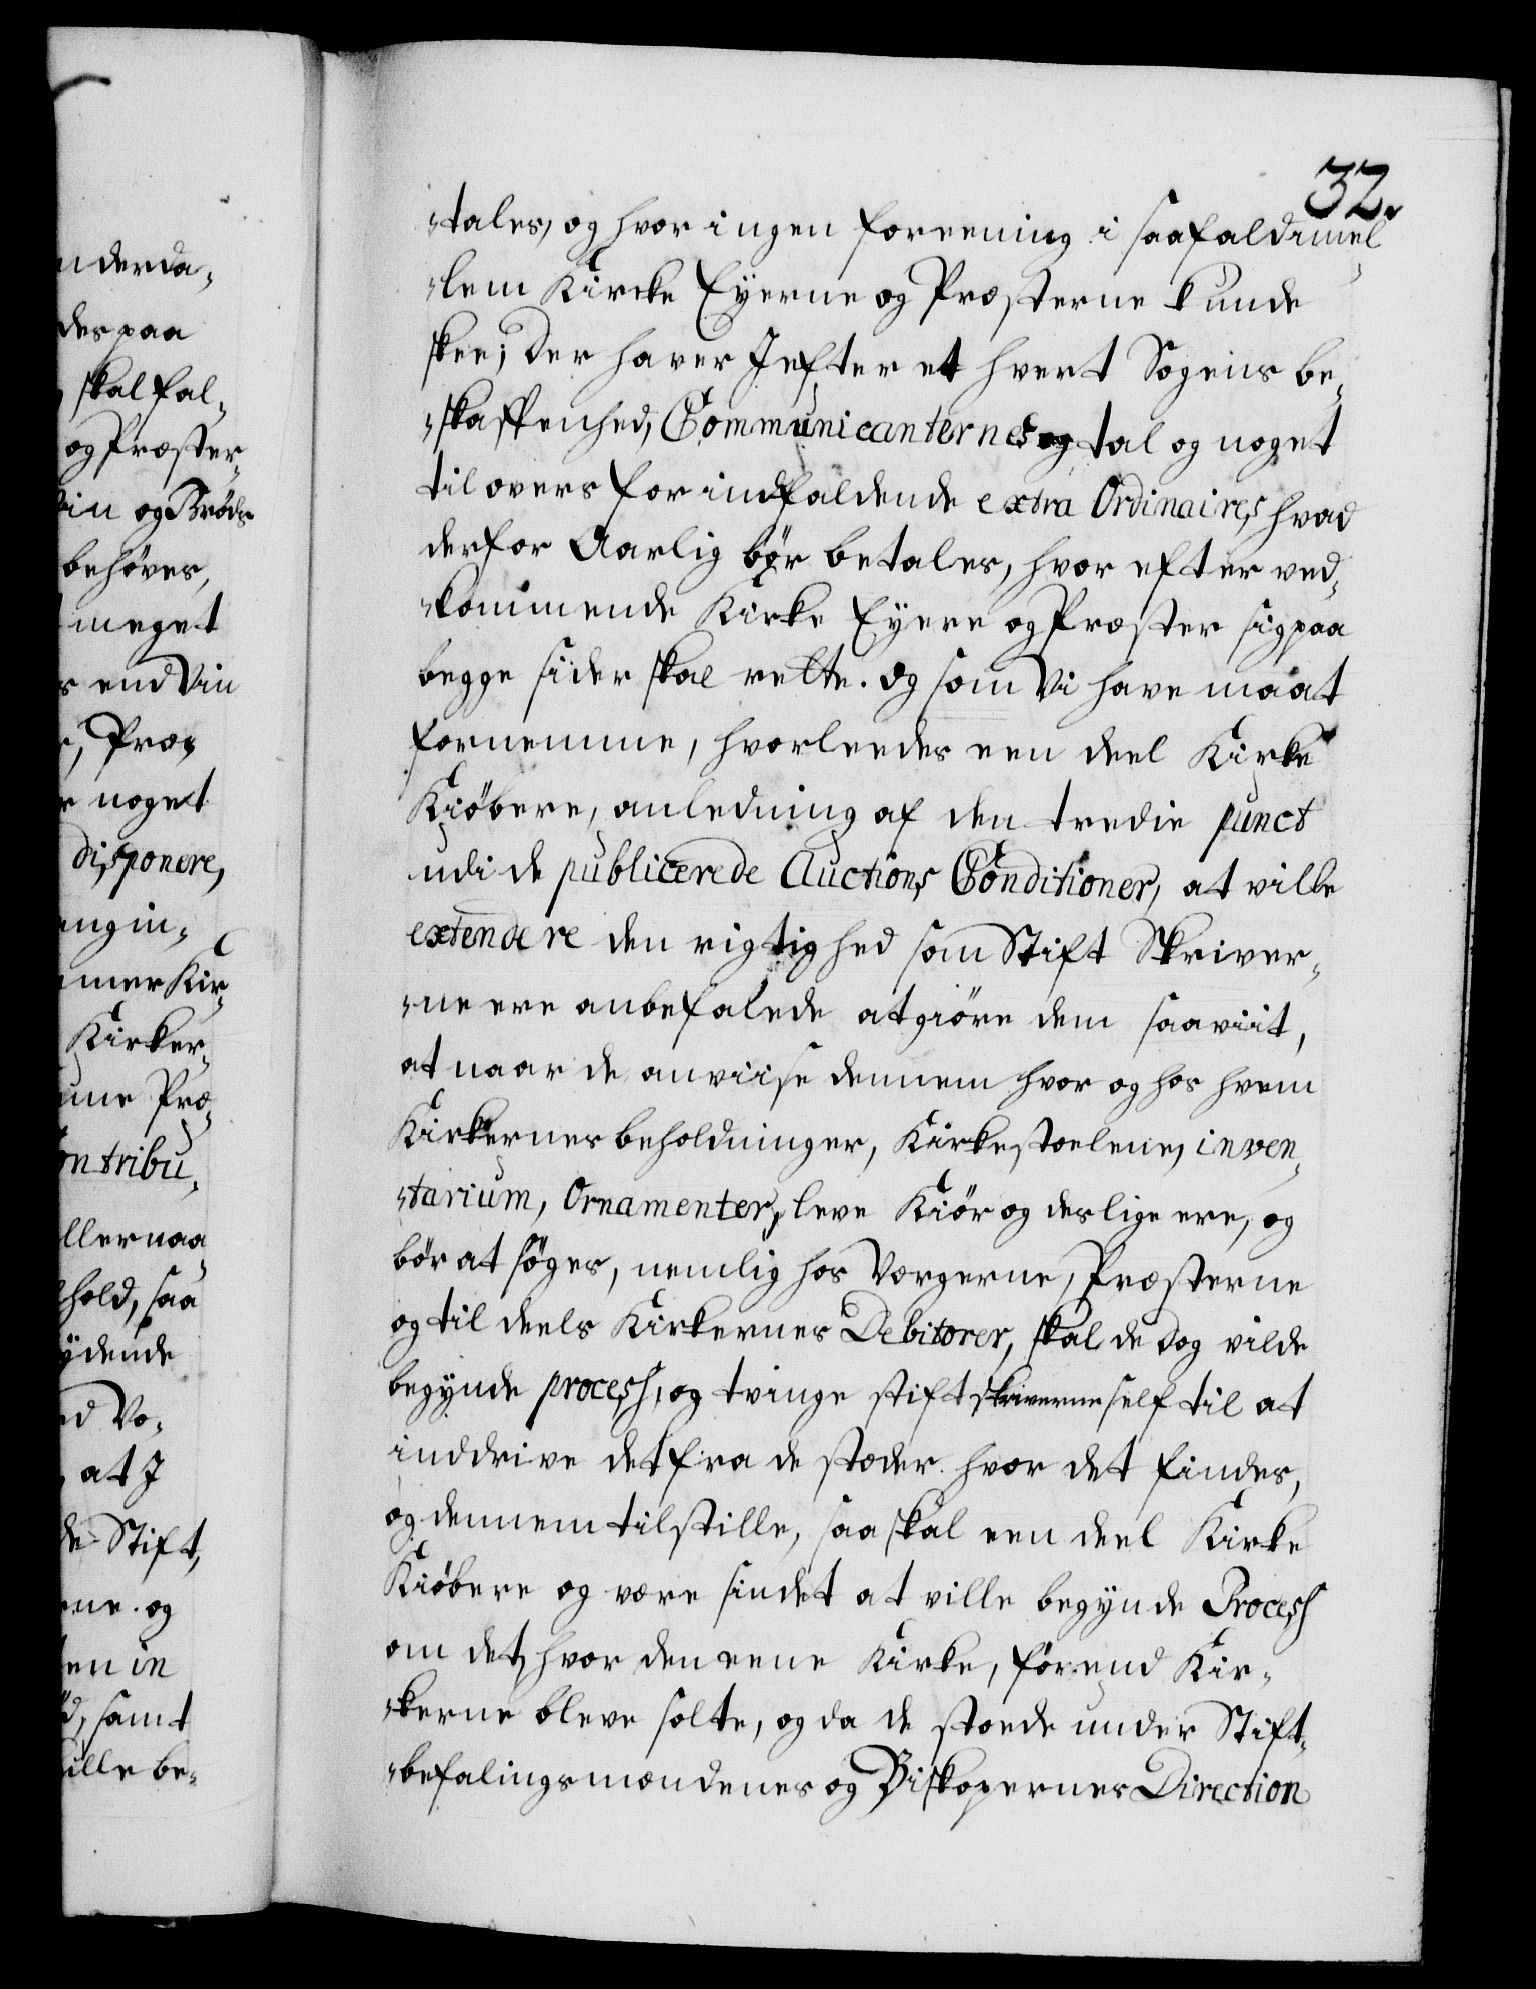 32.
-tales, og hvor ingen foreening i saafald imel
-lem Kircke Eyerne og Præsterne kunde
skee; Der haver I efter et hvert Sogens be-
-skaffenhed, Communicanternes og tal og noget
til overs for indfaldende extra Ordinaires, hvad
derfor Aarlig bør betales, hvor efter ved-
-kommende Kirke Eyere og Præster sig paa
begge sider skal rette. Og som Vi have maat
fornemme, hvorleedes een deel Kirke
Kiøbere, anledning af den tredie punct
udi de publicerede Auctions Conditioner, at ville
extendere den rigtighed som Stift Skriver-
-ne ere anbefalede at giøre dem saaviit,
at naar de anviise dennem hvor og hos hvem
Kirkernes beholdninger, Kirkestoelene, inven-
-tarium, Ornamenter, leve Kiør og deslige ere, og
bør at søges, nemlig hos Værgerne, Præsterne
og til deels Kirkernes Debitorer, skal de dog vilde
begynde process, og tvinge stiftskriverne self til at
inddrive det fra de stæder hvor det findes,
og dennem tilstille, saa skal een deel Kirke
Kiøbere og være sindet at ville begynde Process
om det, hvor den eene Kirke, førend Kir-
-kerne bleve solte, og da de stoede under Stift-
-befalingsmændenes og Biskopernes Direction
nderda-
des paa
skal fal-
og Præster-
Viin og Brøds
behøves,
meget
s end Viin
e, Præs
r noget
disponere,
ing in-
mmer Kir-
Kirker-
une Præ-
ontribu-
ller naa-
hold, saa
ydende
ed Vo-
, at I
de Stift,
ene. og
en in
d, samt
ille be-